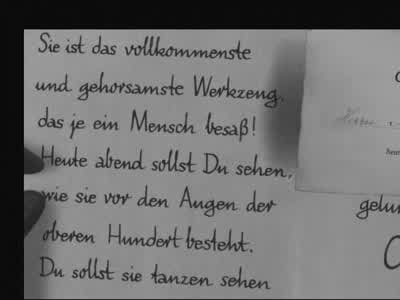 Sie ist das vollkommenste
und gehorsamste Werkzeug,
das je ein Mensch besaß!
Heute abend sollst Du sehen,
wie sie vor den Augen der
oberen Hundert besteht.
Du sollst sie tanzen sehen